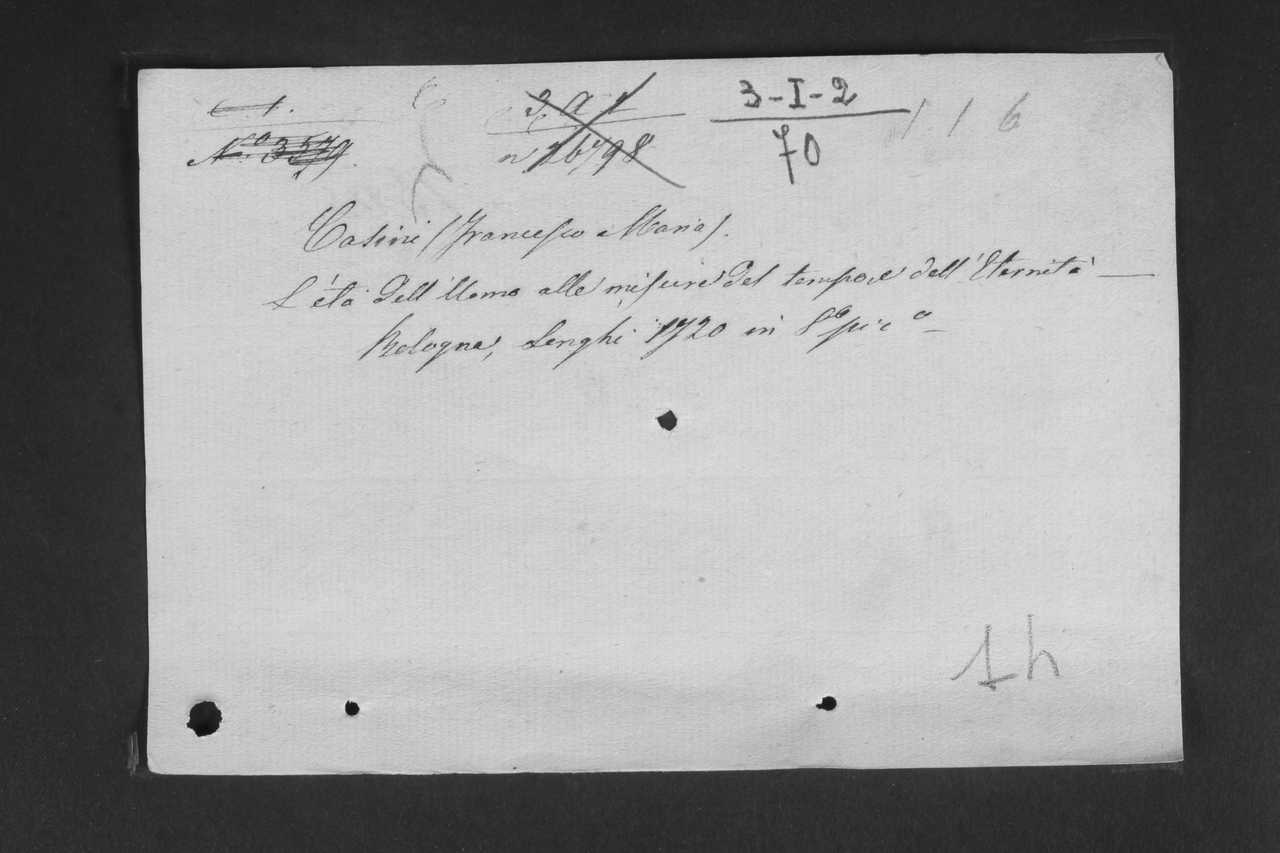 C 1.
N.o 3579.
2 A 1
n 16798
3-I-2
70
116
Casini (Francesco Maria).
L'età dell'Uomo alle misure del tempo, e dell'Eternità —
Bologna, Longhi 1720 in 8° pic°
14